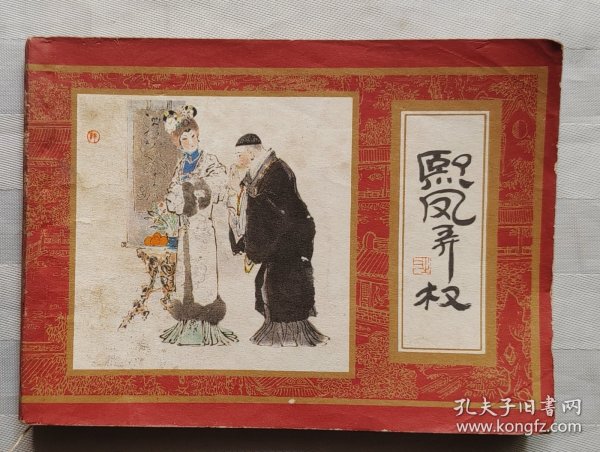 熙凤弄权
孔夫子旧书网
www.kongfz.com